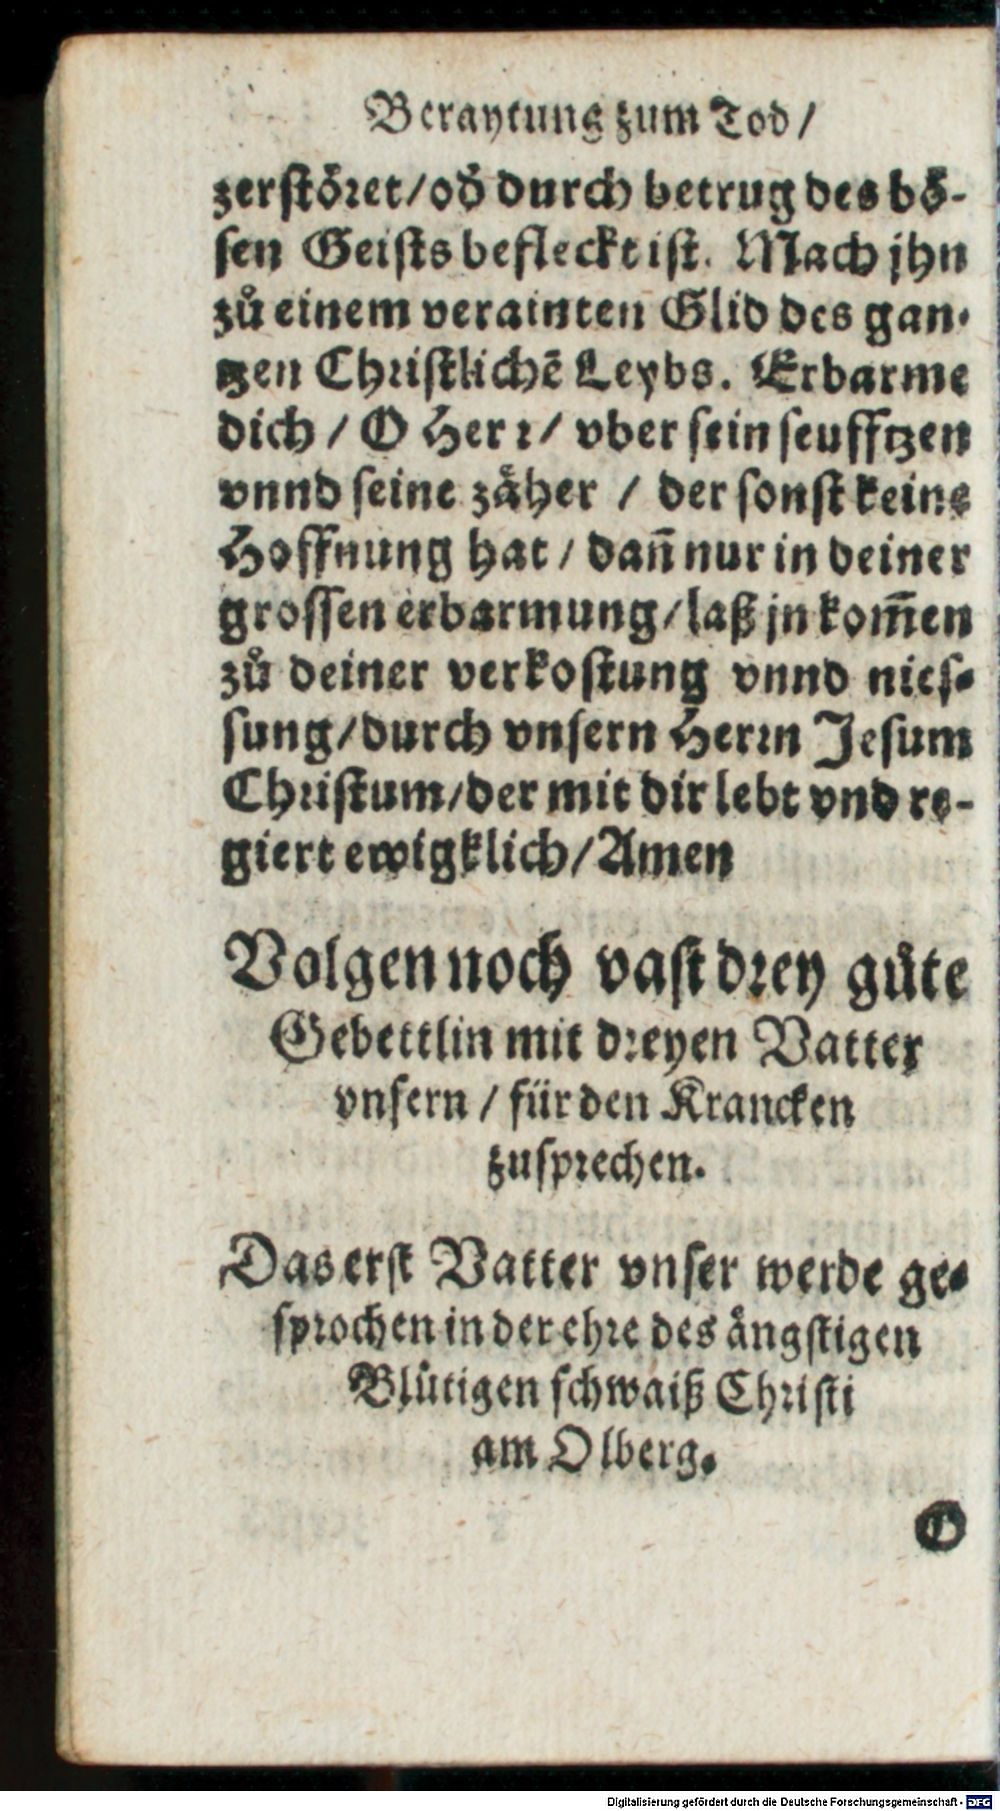 Beraytung zum Tod/
zerstöret/od̄ durch betrug des bö-
sen Geists befleckt ist. Mach jhn
zů einem verainten Glid des gan-
tzen Christlichē Leybs. Erbarme
dich / O Herr / vber sein seufftzen
vnnd seine zäher / der sonst keine
Hoffnung hat / dañ nur in deiner
grossen erbarmung/laß jn kom̄en
zů deiner verkostung vnnd nies-
sung/durch vnsern Herrn Jesum
Christum/der mit dir lebt vnd re-
giert ewigklich/Amen
Volgen noch vast drey gůte
Gebettlin mit dreyen Vatter
vnsern / für den Krancken
zusprechen.
Das erst Vatter vnser werde ge-
sprochen in der ehre des ängstigen
Blůtigen schwaiß Christi
am Olberg.
O
Digitalisierung gefördert durch die Deutsche Forschungsgemeinschaft - DFG